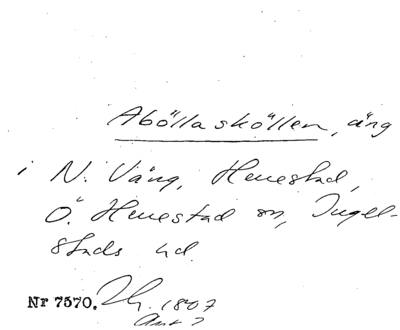 Abölla sköllen, äng
i N. Väng, Henestad,
Ö. Henestad sn, Ingel-
stads hd.
Nr 7570. 1807